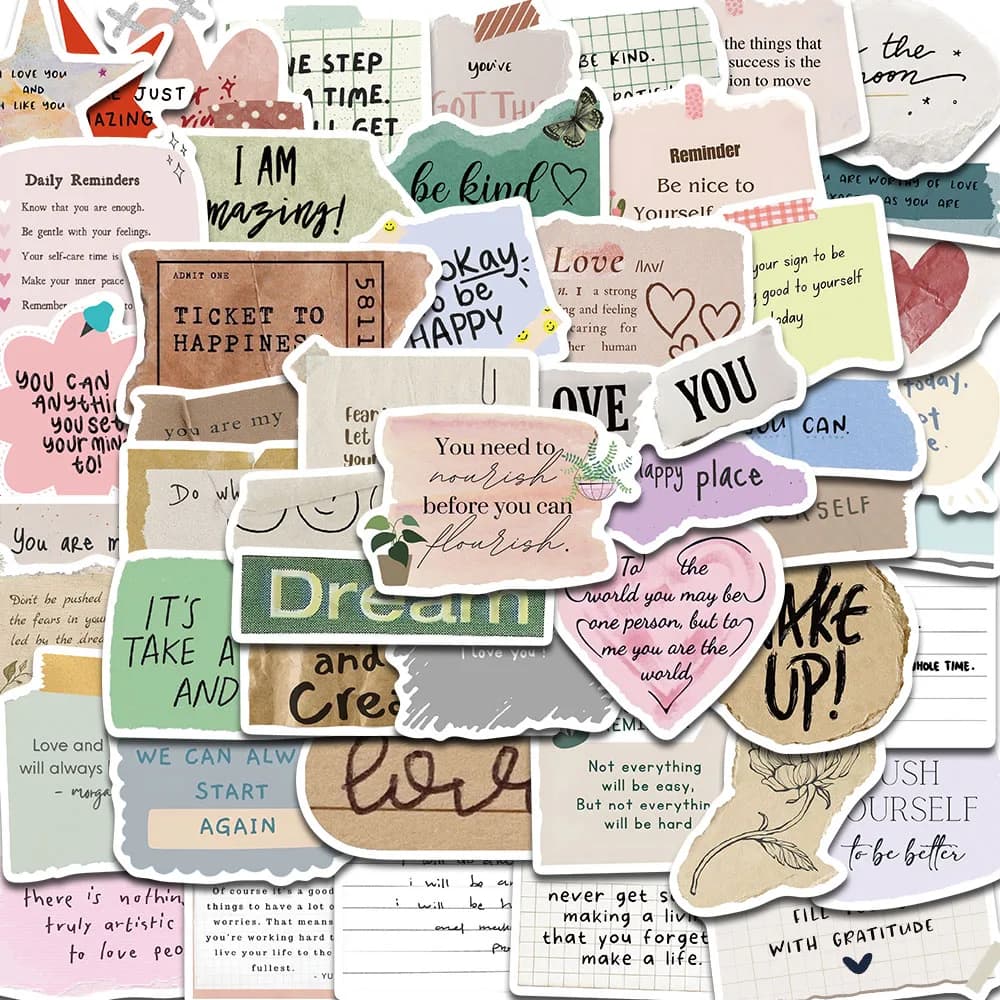 I LOVE YOU
AND
I LIKE YOU
JUST
AZING
STEP
TIME.
GET
you've
GOT THIS
BE KIND.
the things that
success is the
to move
the
moon
Daily Reminders
Know that you are enough.
Be gentle with your feelings.
Your self-care time is
Make your inner peace
Remember
to
I AM
mazing!
be kind
Reminder
Be nice to
Yourself
ARE WORTHY OF LOVE
AS YOU ARE
ADMIT ONE
TICKET TO
HAPPINES
5811
OKAY
to be
HAPPY
Love /lʌv/
n. 1 a strong
and feeling
caring for
human
your sign to be
good to yourself
today
YOU CAN
ANYTHI
YOU SET
YOUR MIN
TO!
you are my
Fear
Let
you
OVE
YOU
YOU CAN.
today,
You need to
nourish
before you can
flourish.
appy place
Do wh
You are m
URSELF
Don't be pushed
the fears in your
led by the drea
IT'S
TAKE A
AND
Dream
and
Crea
I love you!
To the
world you may be
one person, but to
me you are the
world
AKE
UP!
WHOLE TIME.
Love and
will always
- morga
WE CAN ALW
START
AGAIN
love
Not everything
will be easy,
But not everything
will be hard
USH
OURSELF
to be better
there is nothin
truly artistic
to love peo
Of course it's a good
things to have a lot o
worries. That means
you're working hard t
live your life to the
fullest.
- YU
i will be a
i will be h
and
never get s
making a livi
that you forget
make a life.
FILL
WITH GRATITUDE